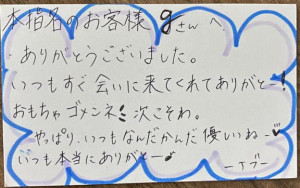 本指名のお客様 gさんへ
ありがとうございました。
いつもすぐ会いに来てくれてありがとー!
おもちゃゴメンネ! 次こそわ。
やっぱり、いつもなんだかんだ優しいね-♥
いつも本当にありがとー♪